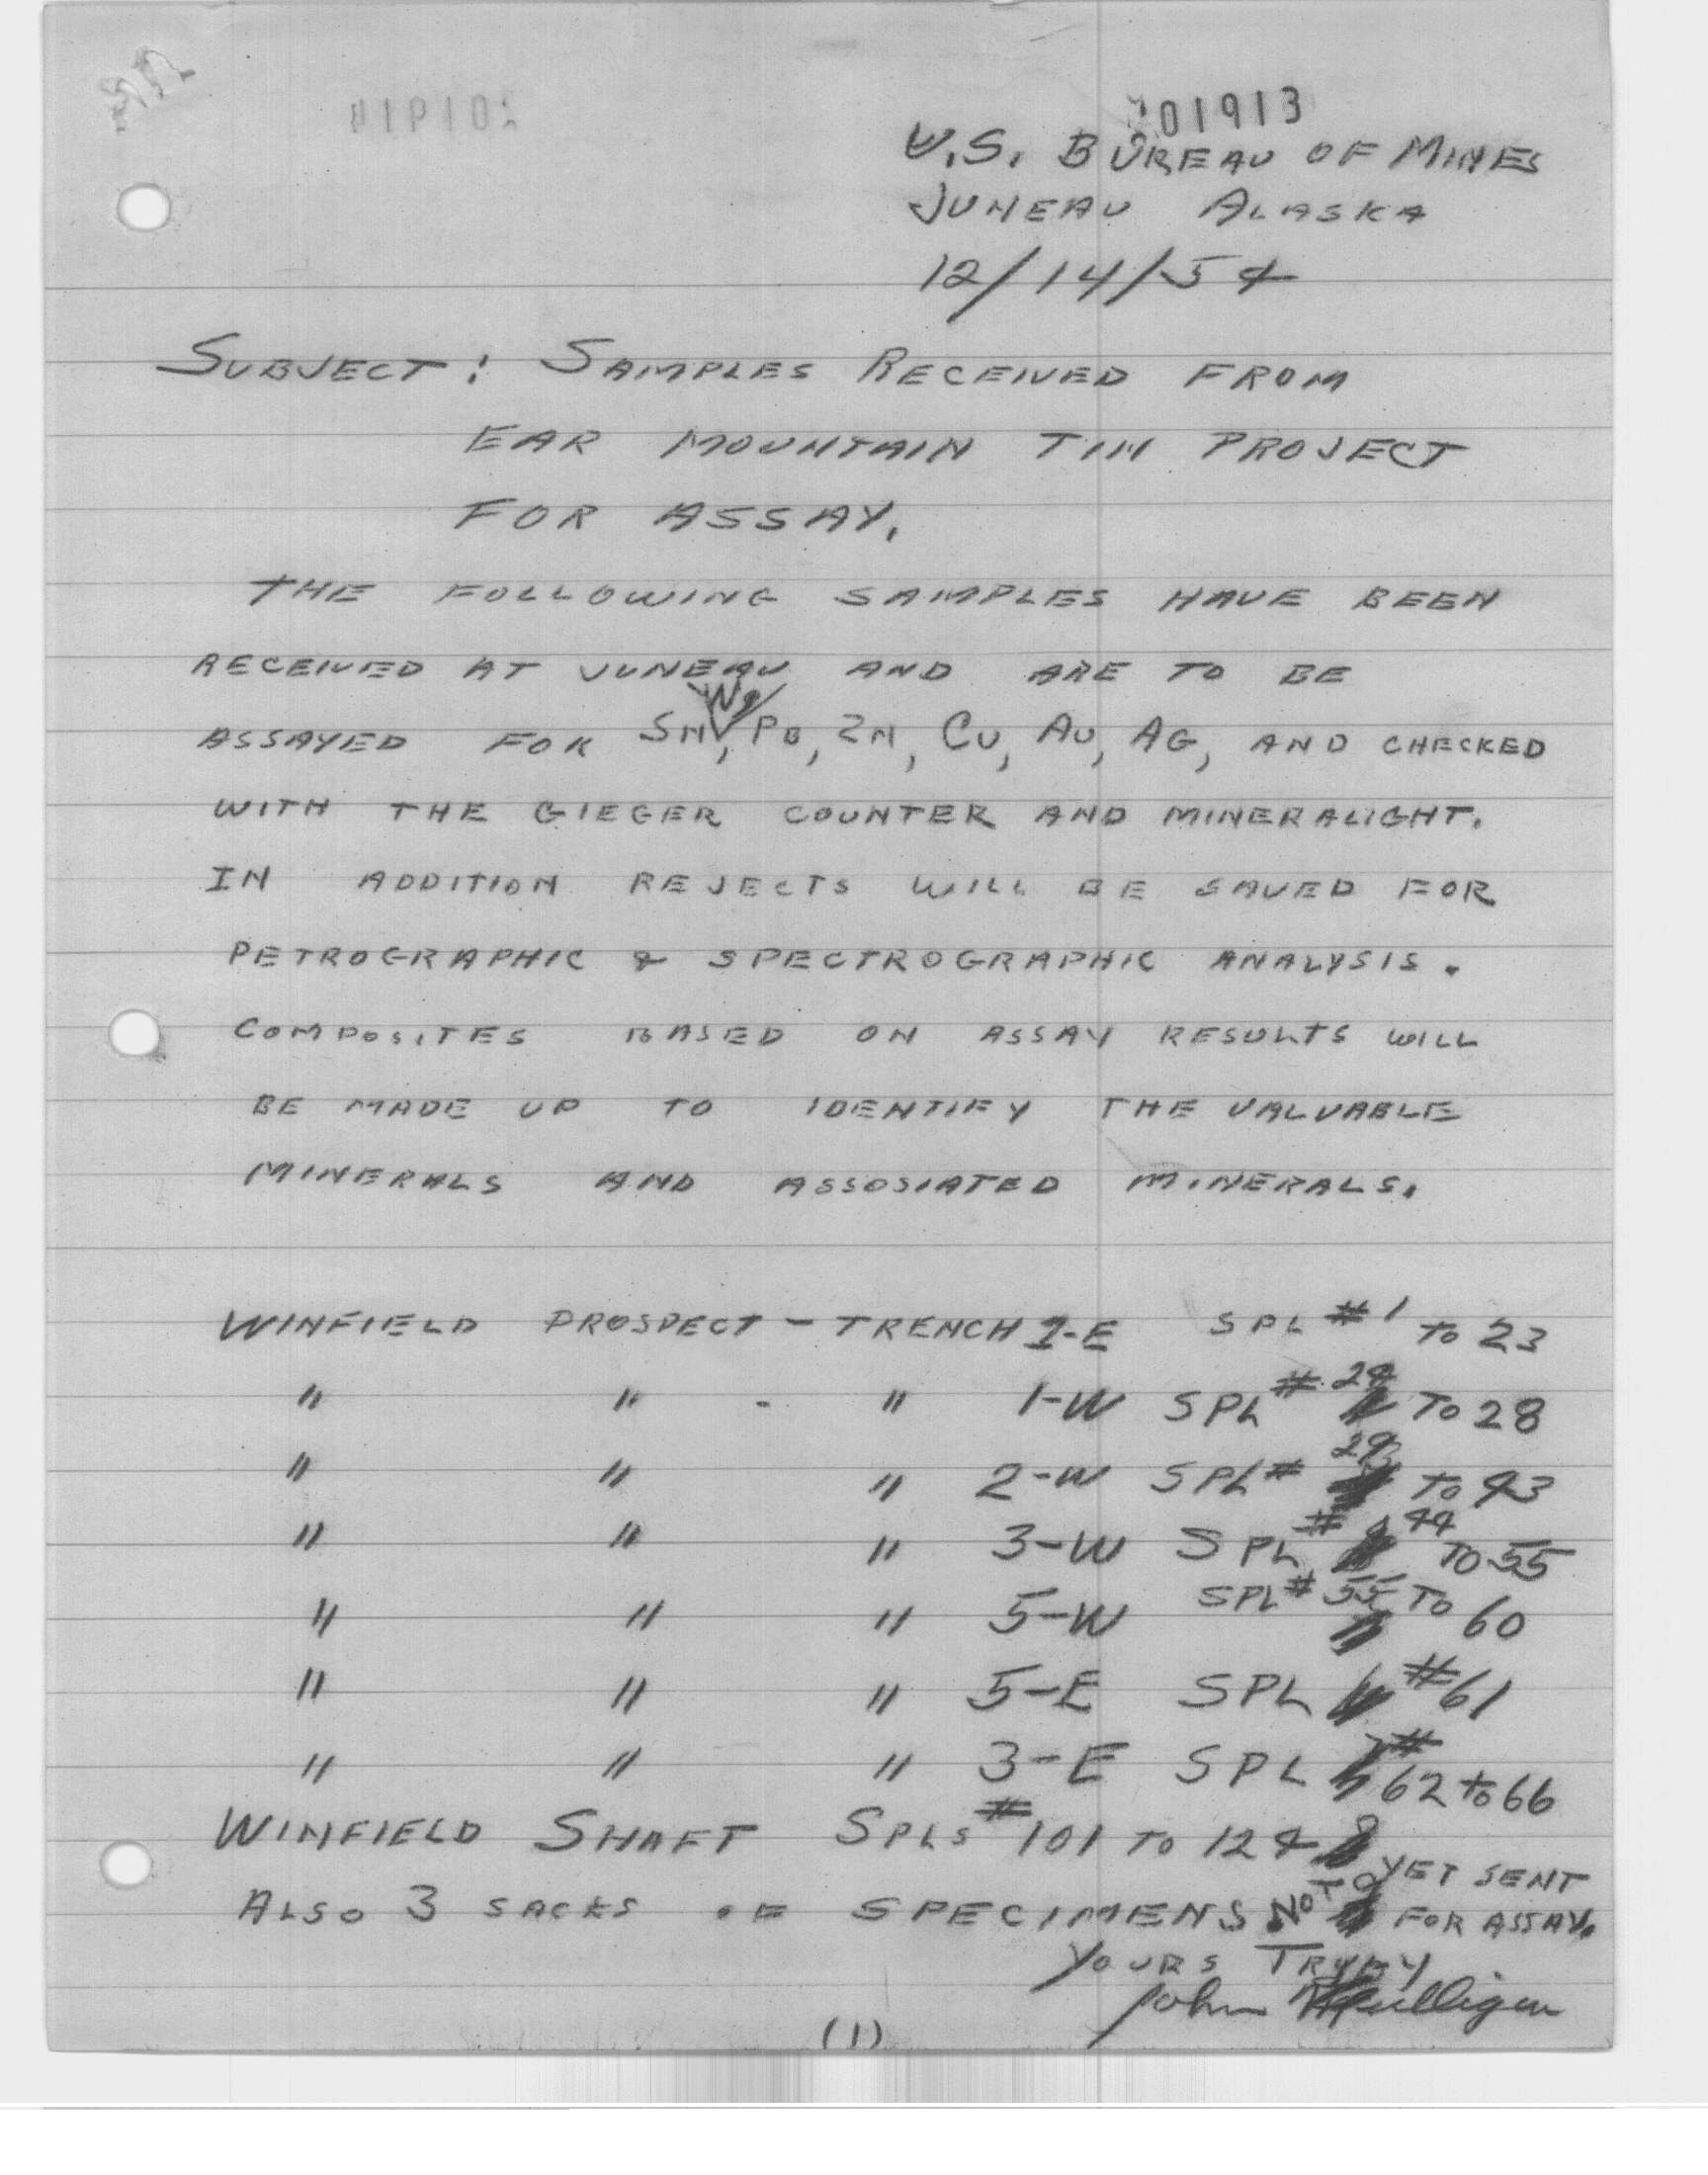 01913
U.S. BUREAU OF MINES
JUNEAU ALASKA
12/14/54
SUBJECT: SAMPLES RECEIVED FROM
EAR MOUNTAIN TIN PROJECT
FOR ASSAY.
THE FOLLOWING SAMPLES HAVE BEEN
RECEIVED AT JUNEAU AND ARE TO BE
ASSAYED FOR SN, PB, ZN, CU, AU, AG, AND CHECKED
WITH THE GIEGER COUNTER AND MINERALIGHT.
IN ADDITION REJECTS WILL BE SAVED FOR
PETROGRAPHIC & SPECTROGRAPHIC ANALYSIS.
COMPOSITES BASED ON ASSAY RESULTS WILL
BE MADE UP TO IDENTIFY THE VALUABLE
MINERALS AND ASSOSIATED MINERALS.
WINFIELD PROSPECT - TRENCH 1-E SPL #1 TO 23
" " - " 1-W SPL # 24 TO 28
" " " 2-W SPL # 29 TO 43
" " " 3-W SPL # 44 TO 55
" " " 5-W SPL # 55 TO 60
" " " 5-E SPL #61
" " " 3-E SPL # 62 to 66
WINFIELD SHAFT SPLS # 101 TO 124
ALSO 3 SACKS OF SPECIMENS NOT YET SENT
FOR ASSAY.
YOURS TRULY
John Mulligan
(1)